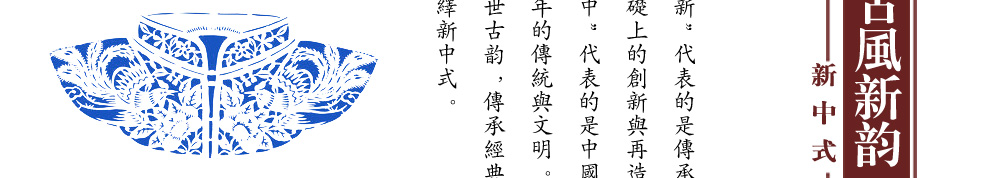 古風新韵
新中式
新〞代表的是傳承
礎上的創新與再造
中〞代表的是中國
年的傳統與文明。
世古韵，傳承經典
繹新中式。